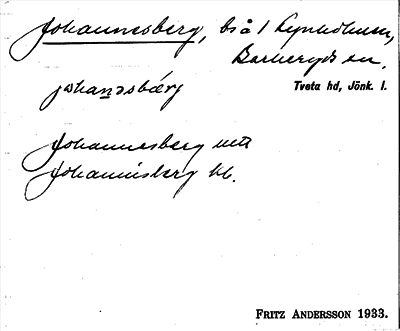 Johannesberg, bs å 1
Barkeryds sn,
Tveta hd, Jönk. l.
johanəsbærj
Johannesberg
Johannisberg kb.
FRITZ ANDERSSON 1933.